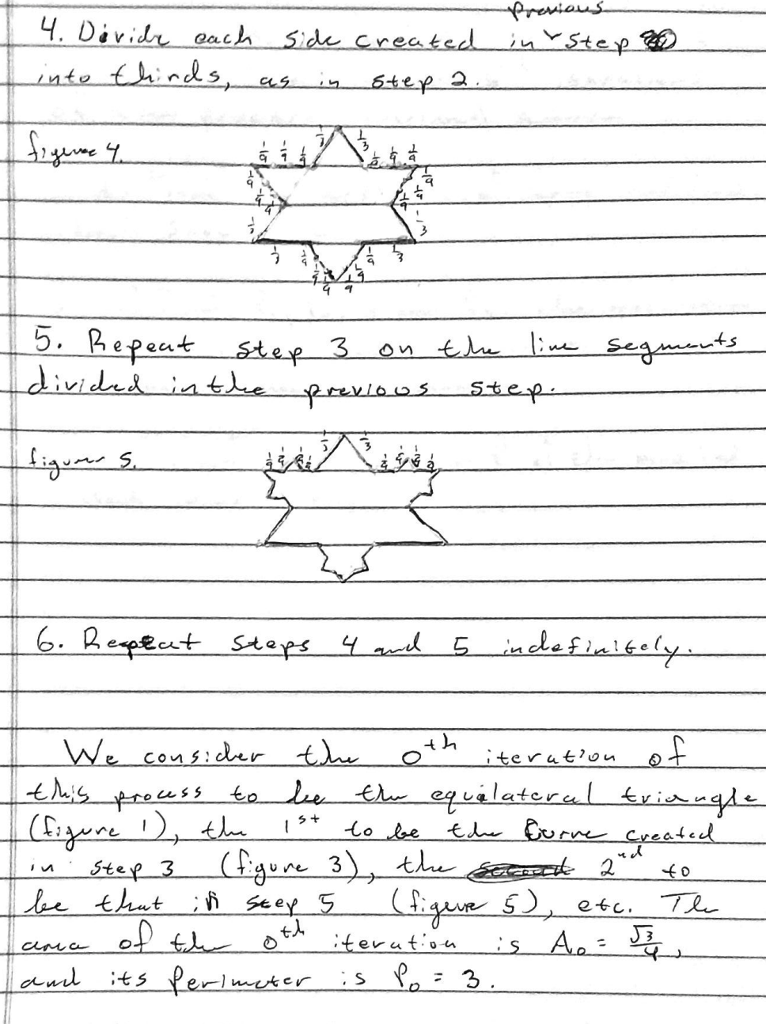 previous
4. Divide each side created in ˅ step
into thirds, as in step 2.
figure 4.
1/3 1/3
1/9 1/9 1/9 1/9 1/9 1/9
1/9 1/9
1/9 1/9 1/9 1/9
1/3 1/3
1/3 1/9 1/9 1/3
1/9 1/9
1/9 1/9
5. Repeat step 3 on the line segments
divided in the previous step.
figure 5.
1/3 1/3
1/9 1/9 1/9 1/9 1/9 1/9 1/9 1/9
6. Repeat steps 4 and 5 indefinitely.
We consider the 0th iteration of
this process to be the equilateral triangle
(figure 1), the 1st to be the curve created
in step 3 (figure 3), the 2nd to
be that in step 5 (figure 5), etc. The
area of the 0th iteration is A₀ = √3/4,
and its perimeter is P₀ = 3.